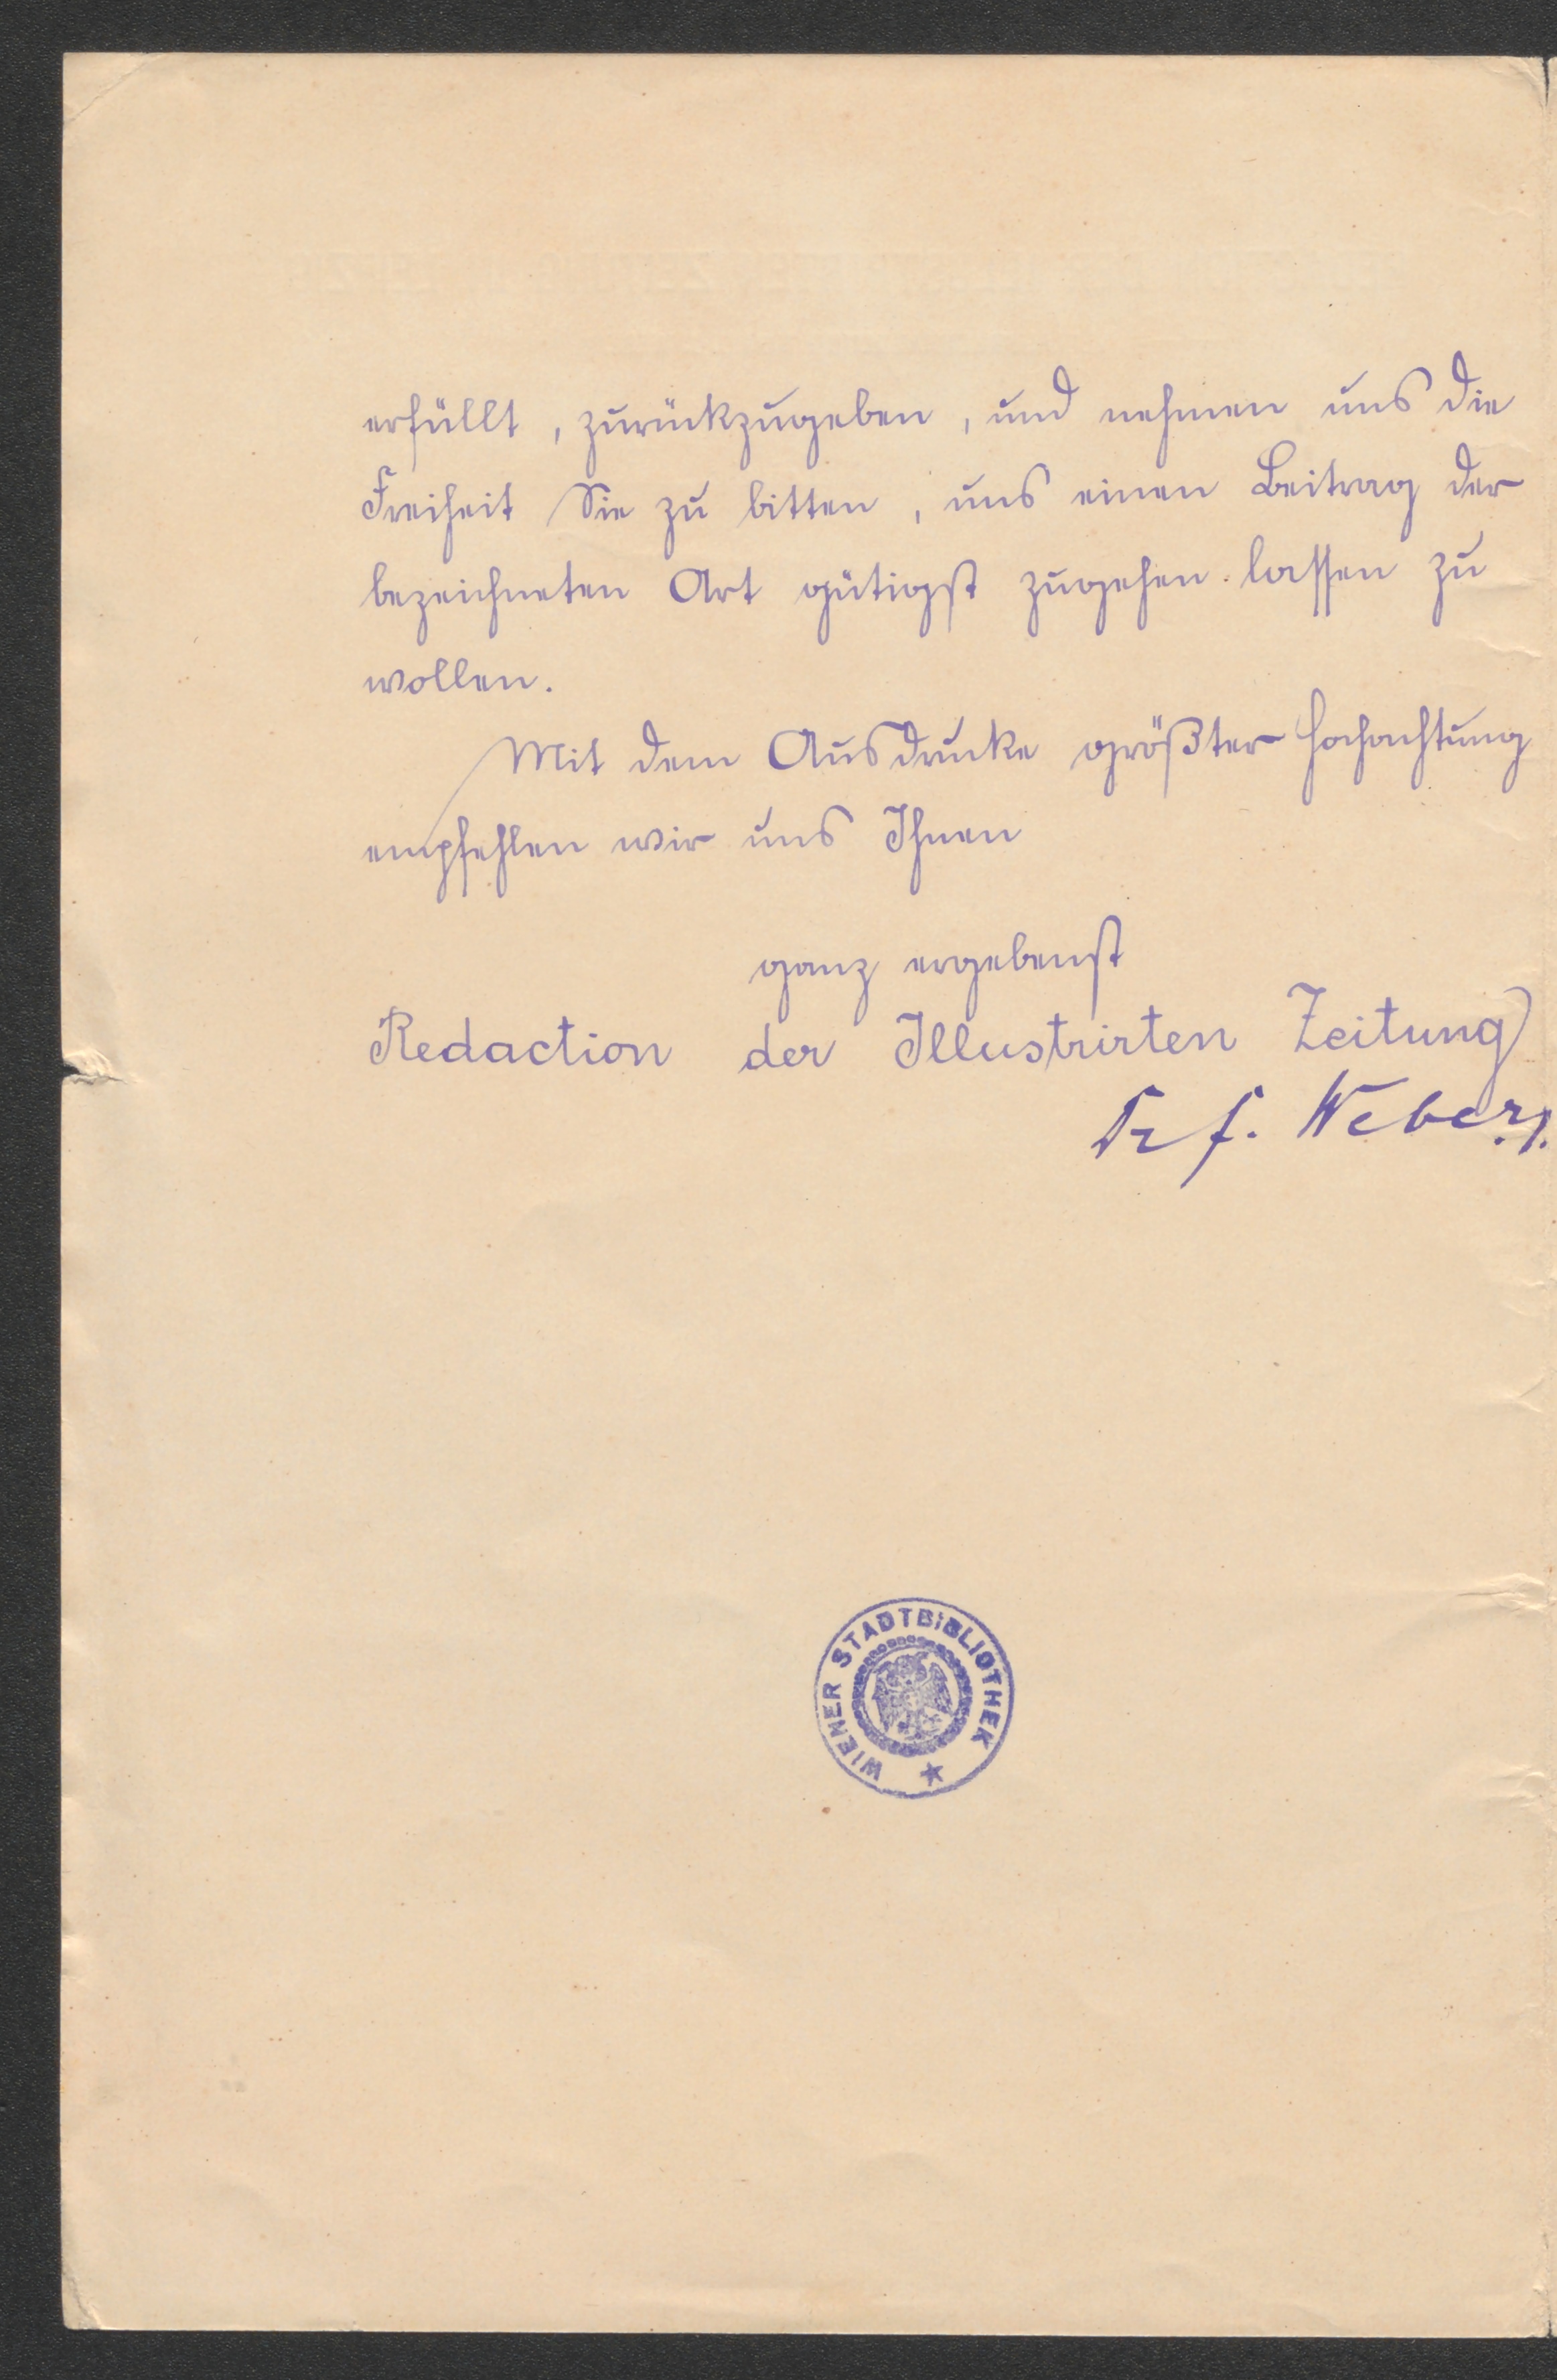 erfüllt, zurückzugeben, und nehmen uns die
Freiheit Sie zu bitten, uns einen Beitrag der
bezeichneten Art gütigst zugehen lassen zu
wollen.
Mit dem Ausdrucke größter Hochachtung
empfehlen wir uns Ihnen
ganz ergebenst
Redaction der Illustrirten Zeitung
Dr f. Weber.
WIENER STADTBIBLIOTHEK